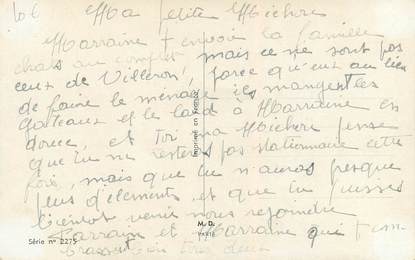 Ma petite Michèle
Marraine t'envoie la famille
chats au complet, mais ce ne sont pas
ceux de Villeron, parce qu'eux au lieu
de faire le ménage ils mangent les
gateaux et le lard à Marraine en
douce, et toi ma Michère pense
que tu ne resteras pas stationnaire cette
fois, mais que tu n'auras presque
plus d'élements et que tu puisses
bientot venir nous rejoindre
Parrain et Marraine qui t'em-
brassent bien tous deux
Imprimé en France
M.D.
PARIS
Série n° 2275